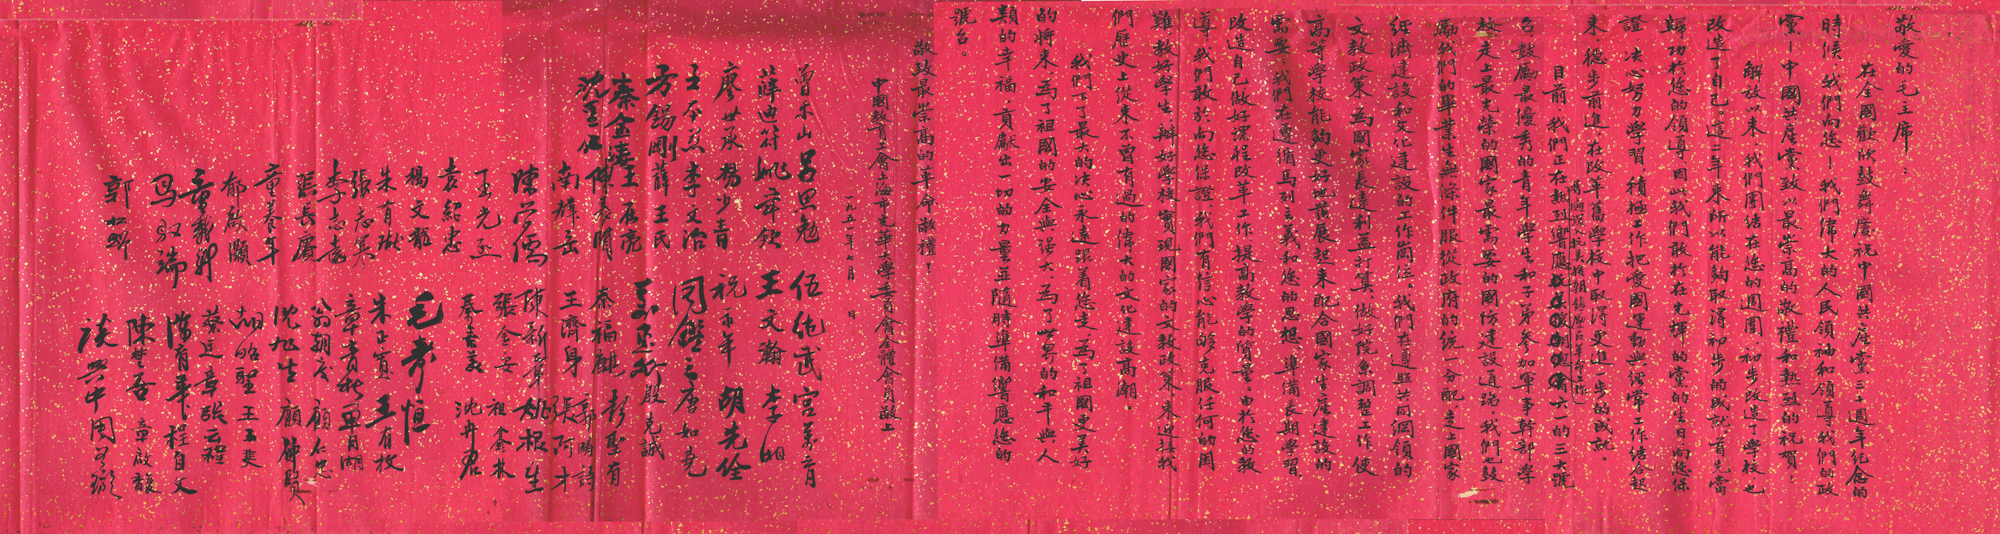 敬愛的毛主席：
在全國歡欣鼓舞慶祝中國共產黨三十週年紀念的
時候，我們向您——我們偉大的人民領袖和領導我們的政
黨——中國共產黨致以最崇高的敬禮和熱烈的祝賀！
解放以來，我們團結在您的週圍，初步改造了學校，也
改造了自己。這二年來所以能夠取得初步的成就，首先當
歸功於您的領導，因此我們敢於在光輝的黨的生日向您保
證，決心努力學習，積極工作，把愛國運動與經常工作結合起
來，穩步前進，在改革舊學校中取得更進一步的成就。
目前，我們正在熱烈響應抗美援朝總會六一的三大號
召，鼓勵最優秀的青年學生和子弟參加軍事幹部學
校，走上最光榮的國家最需要的國防建設道路，我們也鼓
勵我們的畢業生無條件服從政府的統一分配，走上國家
經濟建設和文化建設的工作崗位。我們在遵照共同綱領的
文教政策，為國家長遠利益打算，做好院系調整工作，使
高等學校能夠更好地發展起來配合國家生產建設的
需要。我們在遵循馬列主義和您的思想，準備長期學習，
改造自己，做好課程改革工作，提高教學的質量。由於您的教
導，我們敢於向您保證，我們有信心能夠克服任何的困
難，教好學生，辦好學校，實現國家的文教政策，來迎接我
們歷史上從來不曾有過的偉大的文化建設高潮。
我們下了最大的決心，永遠跟着您走，為了祖國更美好
的將來，為了祖國的安全與強大，為了世界的和平與人
類的幸福，貢獻出一切的力量，並隨時準備響應您的
號召。
敬致最崇高的革命敬禮！
中國教育工會上海市光華大學委員會全體會員敬上
一九五一年七月 日
曾樂山 呂思勉 伍純武 宮萬育
薛迪符 姚舜欽 王文瀚 李明
廖世承 楊少青 祝永年 胡先佺
李文治 周鑑之 唐如堯
方錫剛 薛玉氏 殷克誠
秦金濤 秦福麒 彭聖有
沈重任 郭時詩
南延岳 王濟身 張阿才
陳學儒 陳新章 姚根生
王元丞 張金安 祖鑫林
袁紹忠 沈丹君
楊文龍 毛考恒
朱有瓛 朱正寅 王有枚
張志英 章月湖
李志遠 顧仁忠
張長厲 沈旭生 顧仲賢
童養年 王玉斐
郁啟灝 蔡廷章 張云程
陳有華 程自文
馬叔瑞 章啟馥
郭松卿 談興中